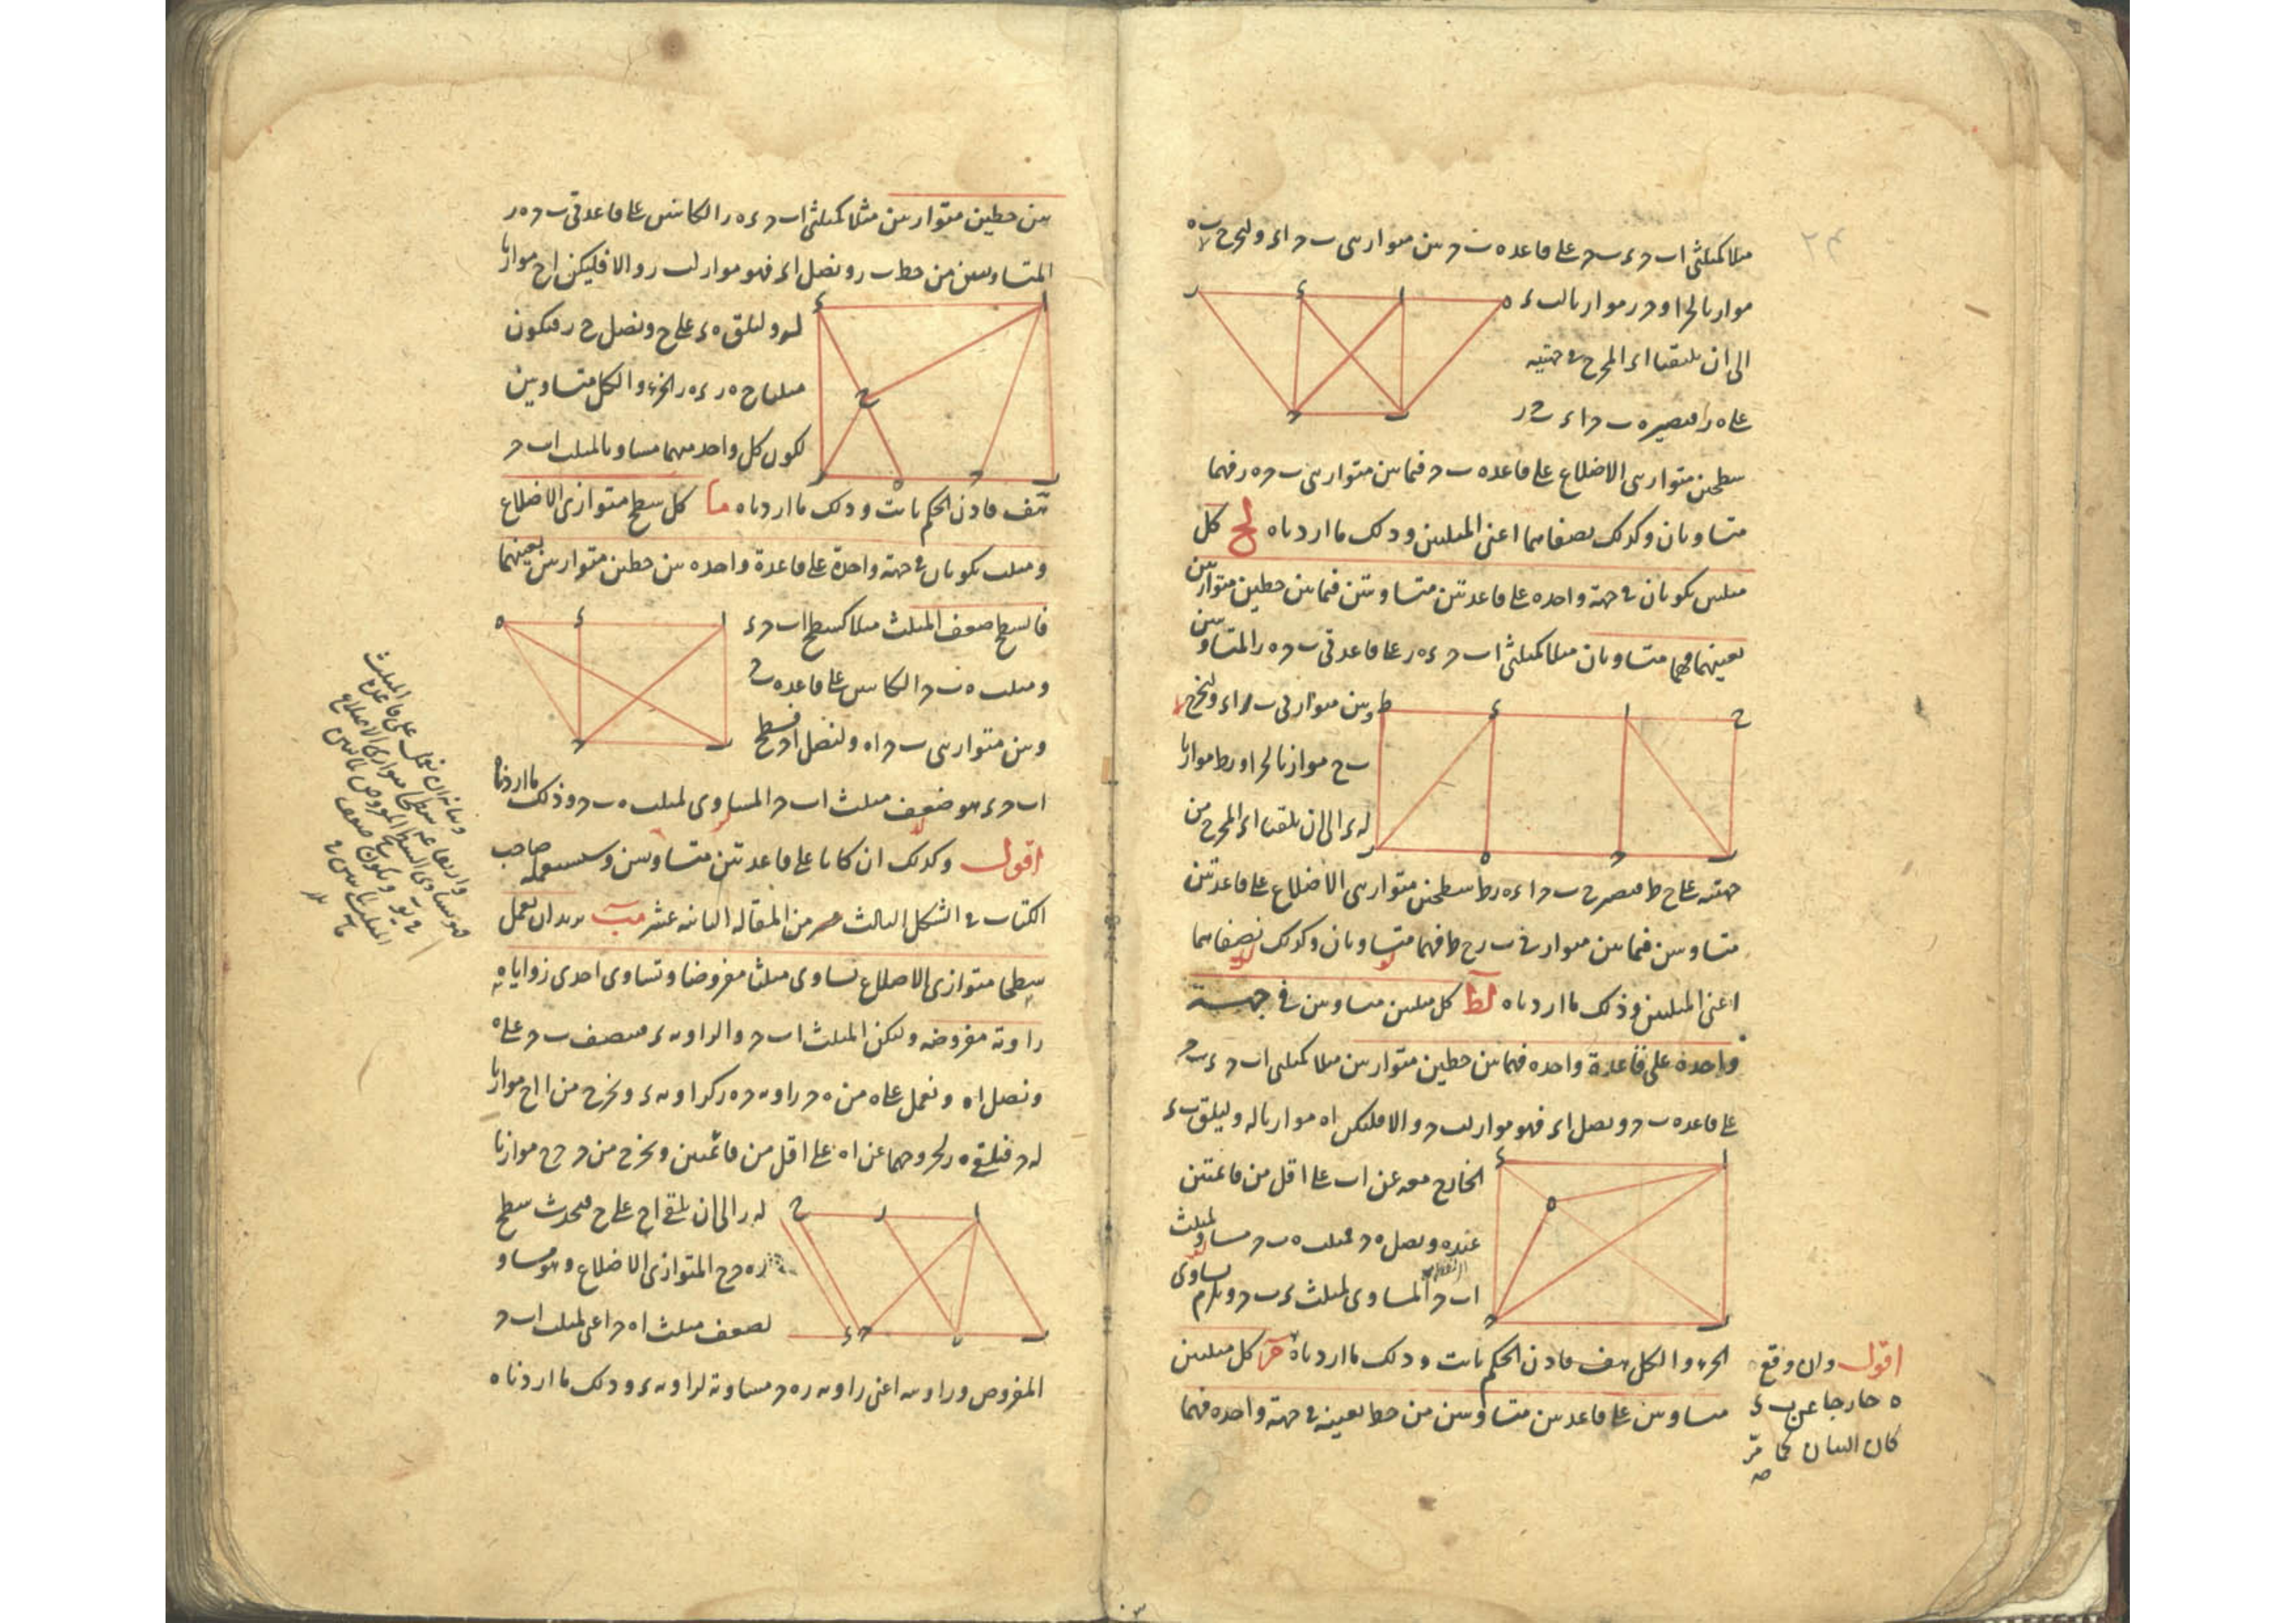 مثلا كمثلثى ا ب ح ء ب ح على قاعده ب ح بين متوازيى ب ح ا ء ولنخرج ب ه
موازيا لحا و ح ر موازيا لب ء
الى ان يلتقيا ا ء المخرج فى جهتيه
على ه ر فيصير ه ب ح ا ء ب ح ر
سطحين متوازيى الاضلاع على قاعده ب ح فيما بين متوازيى ب ح ه ر فهما
متساويان وكذلك نصفاهما اعنى المثلثين وذلك ما اردناه لح كل
مثلثين يكونان فى جهة واحده على قاعدتين متساويتين فيما بين خطين متوازيين
بعينهما فهما متساويان مثلا كمثلثى ا ب ح ء ه ر على قاعدتى ب ح ه ر المتساويتين
وبين متوازيى ب ر ا ء ولنخرج
ب ح موازيا لحا و ر ط موازيا
له ء الى ان يلقيا ا ء المخرج من
جهتيه على ح ط فيصير ح ب ح ا ء ه ر ط سطحين متوازيى الاضلاع على قاعدتين
متساويتين فيما بين متوازيى ب ر ح ط فهما متساويان وكذلك نصفاهما
اعنى المثلثين وذلك ما اردناه لط كل مثلثين متساويين فى جهة
واحدة على قاعدة واحده فهما بين خطين متوازيين مثلا كمثلثى ا ب ح ء ب ح
على قاعده ب ح ونصل ا ء فهو مواز لب ح والا فليكن ا ه موازيا له وليلق ب ء
الخارج معه عن ا ب على اقل من قائمتين
عند ه ونصل ه ح فمثلث ه ب ح مساو لمثلث
ا ب ح المساوى لمثلث ء ب ح ويلزم تساوى
الجزء والكل هف فاذن الحكم ثابت وذلك ما اردناه م كل مثلثين
متساويين على قاعدتين متساويتين من خط بعينه فى جهة واحده فهما
اقول وان وقع
ه خارجا عن ب ء
كان البيان كما مر
بين خطين متوازيين مثلا كمثلثى ا ب ح ء ه ر الكائنين على قاعدتى ب ح ه ر
المتساويتين من خط ب ر ونصل ا ء فهو مواز لب ر والا فليكن ا ح موازيا
له وليلق ه ء على ح ونصل ح ر فيكون
مثلثا ح ه ر ء ه ر الجزء والكل متساويين
لكون كل واحد منهما مساويا لمثلث ا ب ح
هف فاذن الحكم ثابت وذلك ما اردناه ما كل سطح متوازى الاضلاع
ومثلث يكونان فى جهة واحدة على قاعدة واحده بين خطين متوازيين بعينهما
فالسطح ضعف المثلث مثلا كسطح ا ب ح ء
ومثلث ه ب ح الكائنين على قاعده ب ح
وبين متوازيى ب ح ا ه ولنصل ا ح فسطح
ا ب ح ء هو ضعف مثلث ا ب ح المساوى لمثلث ه ب ح وذلك ما اردناه
اقول وكذلك ان كانا على قاعدتين متساويتين وسيستعمله صاحب
الكتاب فى الشكل الثالث من المقاله الثانيه عشر مب نريد ان نعمل
سطحا متوازى الاضلاع يساوى مثلثا مفروضا وتساوى احدى زواياه
زاوية مفروضه وليكن المثلث ا ب ح والزاويه ء فنصف ب ح على ه
ونصل ا ه ونعمل على ه من ه ح زاويه ح ه ر كزاويه ء ونخرج من ا ا ح موازيا
لب ح فيلقى ه ر لخروجهما عن ا ه على اقل من قائمتين ونخرج من ح ح ح موازيا
له ر الى ان يلقى ا ح على ح فيحدث سطح
ر ه ح ح المتوازى الاضلاع وهو مساو
لضعف مثلث ا ه ح اعنى لمثلث ا ب ح
المفروض وزاويته اعنى زاويه ر ه ح مساوية لزاويه ء وذلك ما اردناه